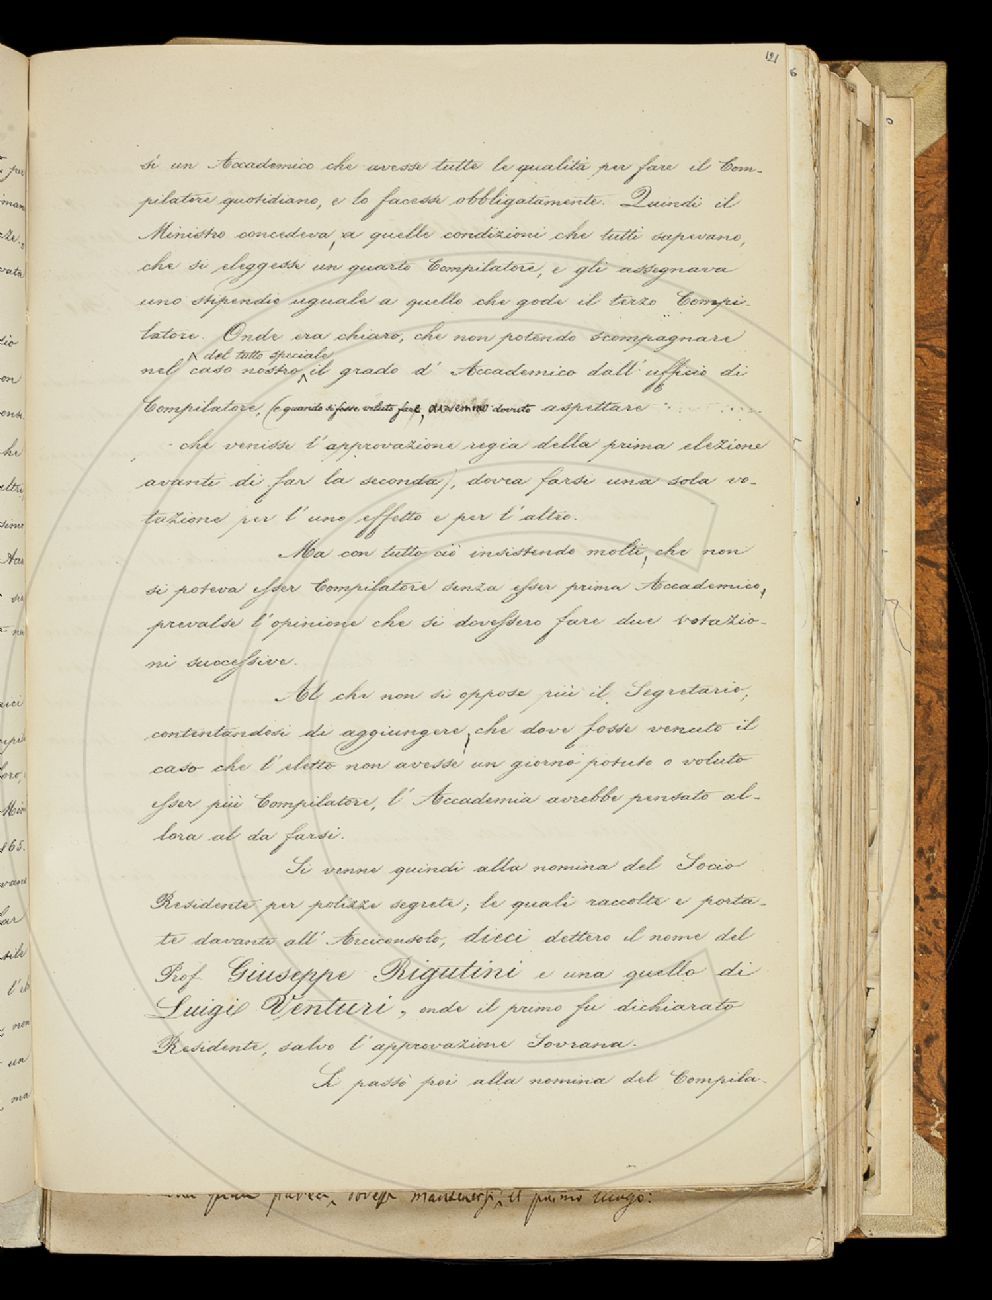 121
6
si un Accademico che avesse tutte le qualità per fare il Com-
pilatore quotidiano, e lo facesse obbligatamente. Quindi il
Ministro concedeva, a quelle condizioni che tutti sapevano,
che si eleggesse un quarto Compilatore, e gli assegnava
uno stipendio uguale a quello che gode il terzo Compi-
latore. Onde era chiaro, che non potendo scompagnare
del tutto speciale
nel caso nostro il grado d' Accademico dall' ufficio di
Compilatore, (e quando si fosse voluto fare, dovuto aspettare
che venisse l' approvazione regia della prima elezione
avante di far la seconda), dovea farsi una sola vo-
tazione per l' uno effetto e per l' altro.
Ma con tutto ciò insistendo molti, che non
si poteva esser Compilatore senza esser prima Accademico,
prevalse l' opinione che si dovessero fare due votazio-
ni successive.
Al che non si oppose più il Segretario,
contentandosi di aggiungere, che dove fosse venuto il
caso che l' eletto non avesse un giorno potuto o voluto
esser più Compilatore, l' Accademia avrebbe pensato al-
lora al da farsi.
Si venne quindi alla nomina del Socio
Residente per polizze segrete; le quali raccolte e porta-
te davante all' Arciconsolo, dieci dettero il nome del
Prof. Giuseppe Rigutini e una quello di
Luigi Venturi, onde il primo fu dichiarato
Residente, salvo l' approvazione Sovrana.
Si passò poi alla nomina del Compila-
il primo luogo: